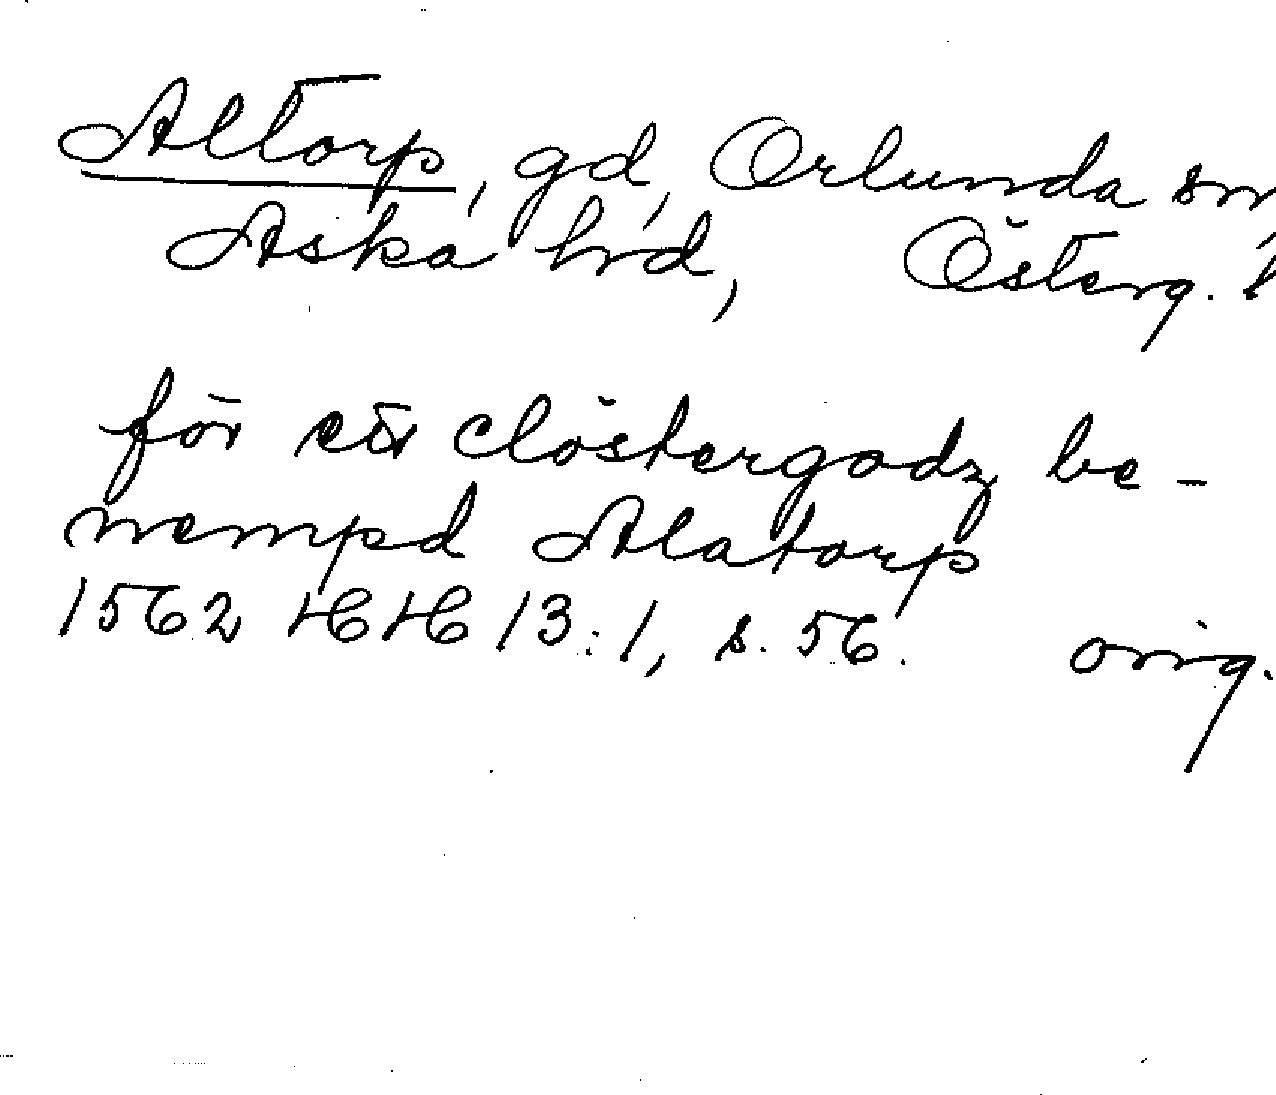 Altorp, gd, Orlunda sn
Aska hrd, Österg. l
för ett clöstergodz be-
nempd Alatorp
1562 HH 13:1, s. 56. orig.